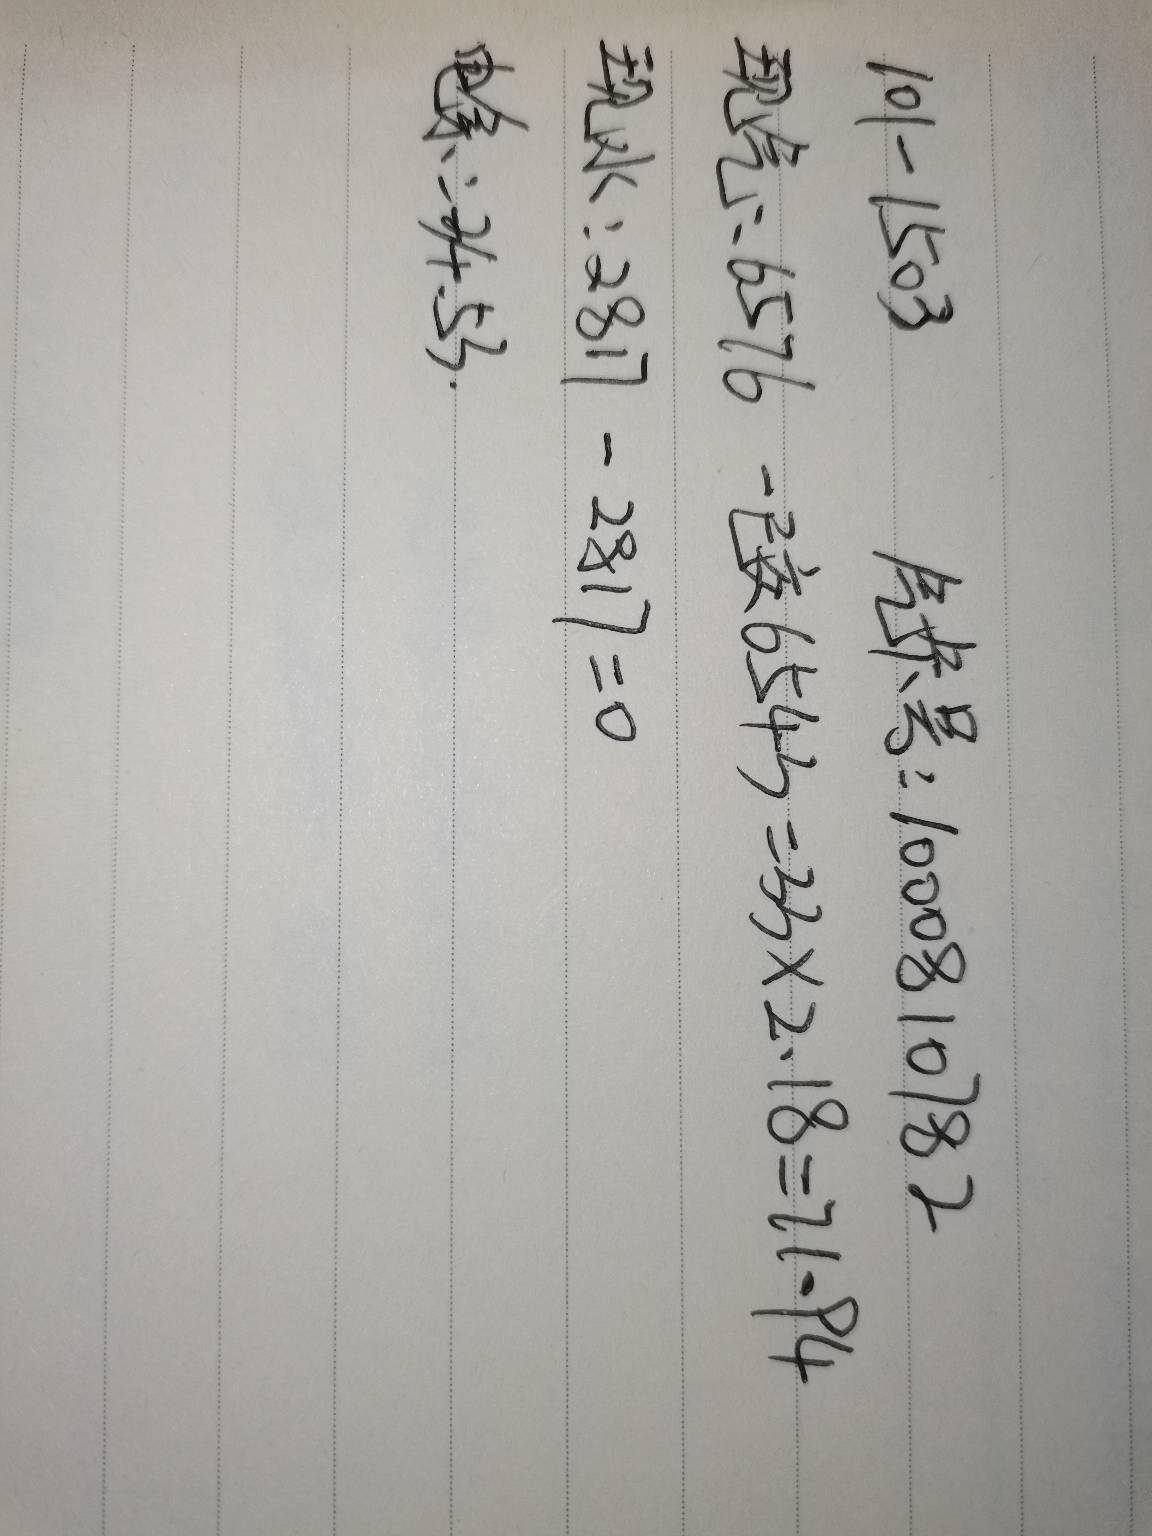 101-1503 气表号:1000810782
现气:6576 -已交6543=33×2.18=71.94
现水:2817 -2817=0
电余:-24.53.